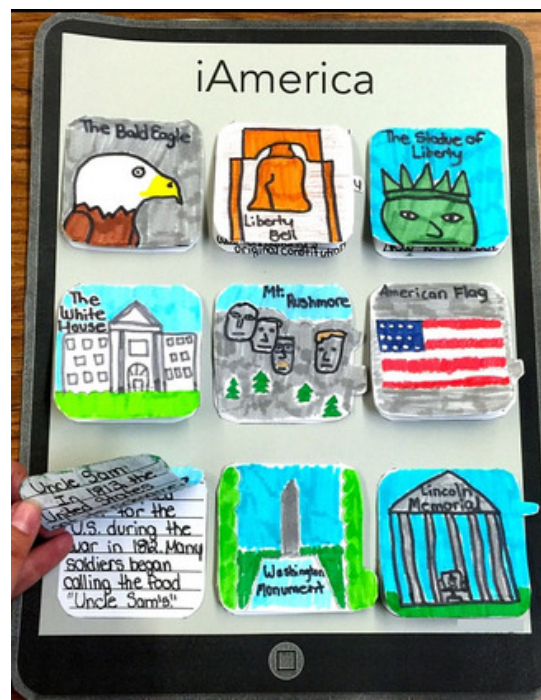 iAmerica
The Bald Eagle
Liberty
Bell
original constitution
The Statue of
Liberty
The
White
House
Mt.
Rushmore
American Flag
Uncle Sam:
In 1813, the
United States
for the
U.S. during the
war in 1812. Many
soldiers began
calling the food
"Uncle Sam's."
Washington
Monument
Lincoln
Memorial